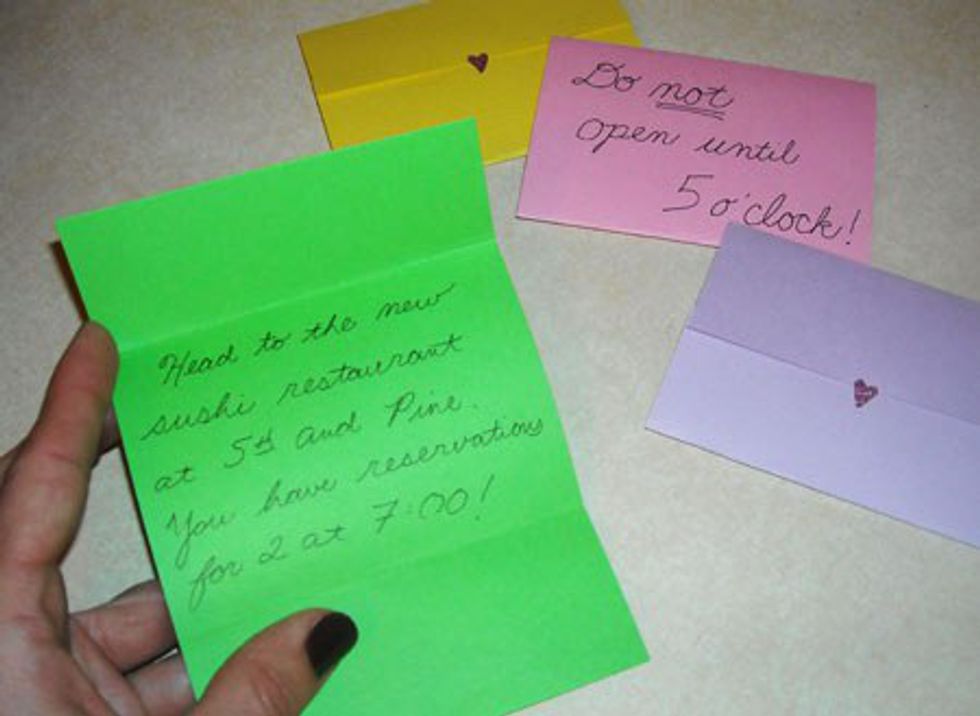 Do not
open until
5 o'clock!
Head to the new
sushi restaurant
at 5th and Pine.
You have reservations
for 2 at 7:00!